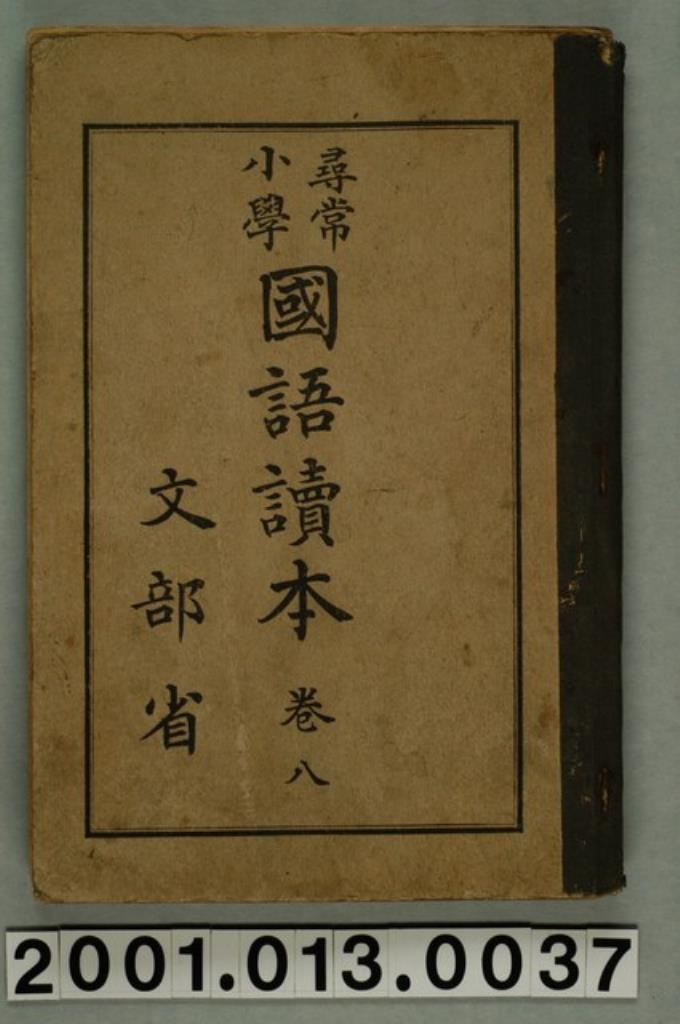 尋常
小學
國語讀本 卷八
文部省
2001.013.0037